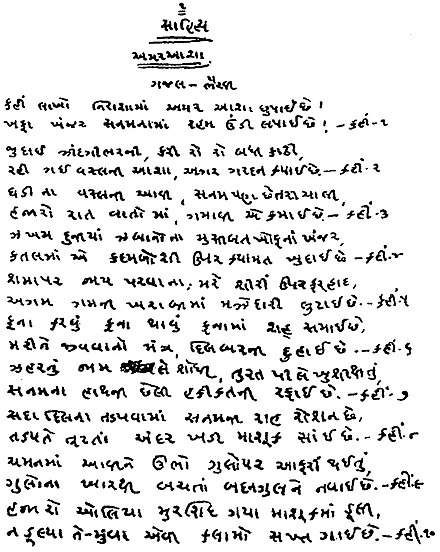 ૧
સાહિત્ય
અમર આશા
ગઝલ – ભૈરવી
કહીં લાખો નિરાશામાં અમર આશા છુપાઈ છે!
ખફા ખંજર સનમનામાં રહમ ઉંડી લપાઈ છે! – કહીં – ૧
જુદાઈ ઝીંદગીભરની, કરી રો રો બધી કાઢી,
રહી ગઈ વસ્લની આશા, અગર ગરદન કપાઈ છે – કહીં – ૨
ઘડી ના વસ્લની આવી, સનમ પણ છેતરી ચાલી,
હજારો રાત વાતોમાં, ગમાવી એ કમાઈ છે – કહીં – ૩
ઝખમ દુનીયાં ઝબાનોના મુસીબત ખોફનાં ખંજર,
કતલમાં એ કદમબોશી ઉપર કયામત ખુદાઈ છે – કહીં – ૪
શમા પર જાય પરવાના, મરે શીરીં ઉપર ફરહાદ,
અગમ ગમની ખરાબામાં મઝેદારી લુટાઈ છે – કહીં – ૫
ફના કરવું ફના થાવું ફનામાં શહ સમાઈ છે,
મરીને જીવવાનો મંત્ર, દિલબરની દુહાઈ છે – કહીં – ૬
ઝહરનું જામ લે શોધી, તુરત પીલે ખુશીથી તું,
સનમના હાથની છેલ્લી હકીકતની રફાઈ છે – કહીં – ૭
સદા દિલના તડપવામાં સનમની રાહ રોશન છે,
તડપતે તૂટતાં અંદર ખડી માશૂક સાંઈ છે – કહીં – ૮
ચમનમાં આવીને ઉભો ગુલો પર આફરીં થઈ તું,
ગુલોના ખારથી બચતાં બદનગુલને નવાઈ છે – કહીં – ૯
હજારો ઓલિયા મુરશિદ ગયા માશૂકમાં ડૂલી,
ન ડૂલ્યા તે મુવા એવી કલામો સખ્ત ગાઈ છે – કહીં – ૧૦